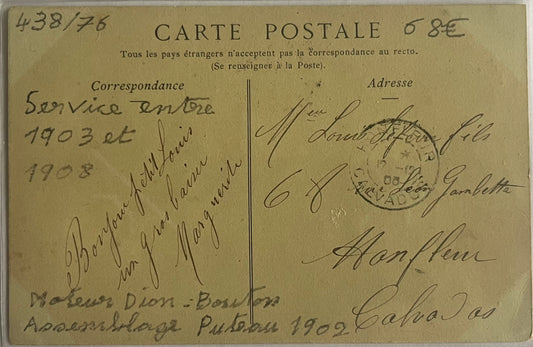 438/76
68€
CARTE POSTALE
Tous les pays étrangers n'acceptent pas la correspondance au recto.
(Se renseigner à la Poste).
Correspondance
Adresse
Service entre
1903 et
1908
Bonjour petit Louis
un gros baiser
Marguerite
Moteur Dion-Bouton
Assemblage Puteau 1902
Louis fils
68 rue Léon Gambetta
Honfleur
Calvados
HONFLEUR
CALVADOS